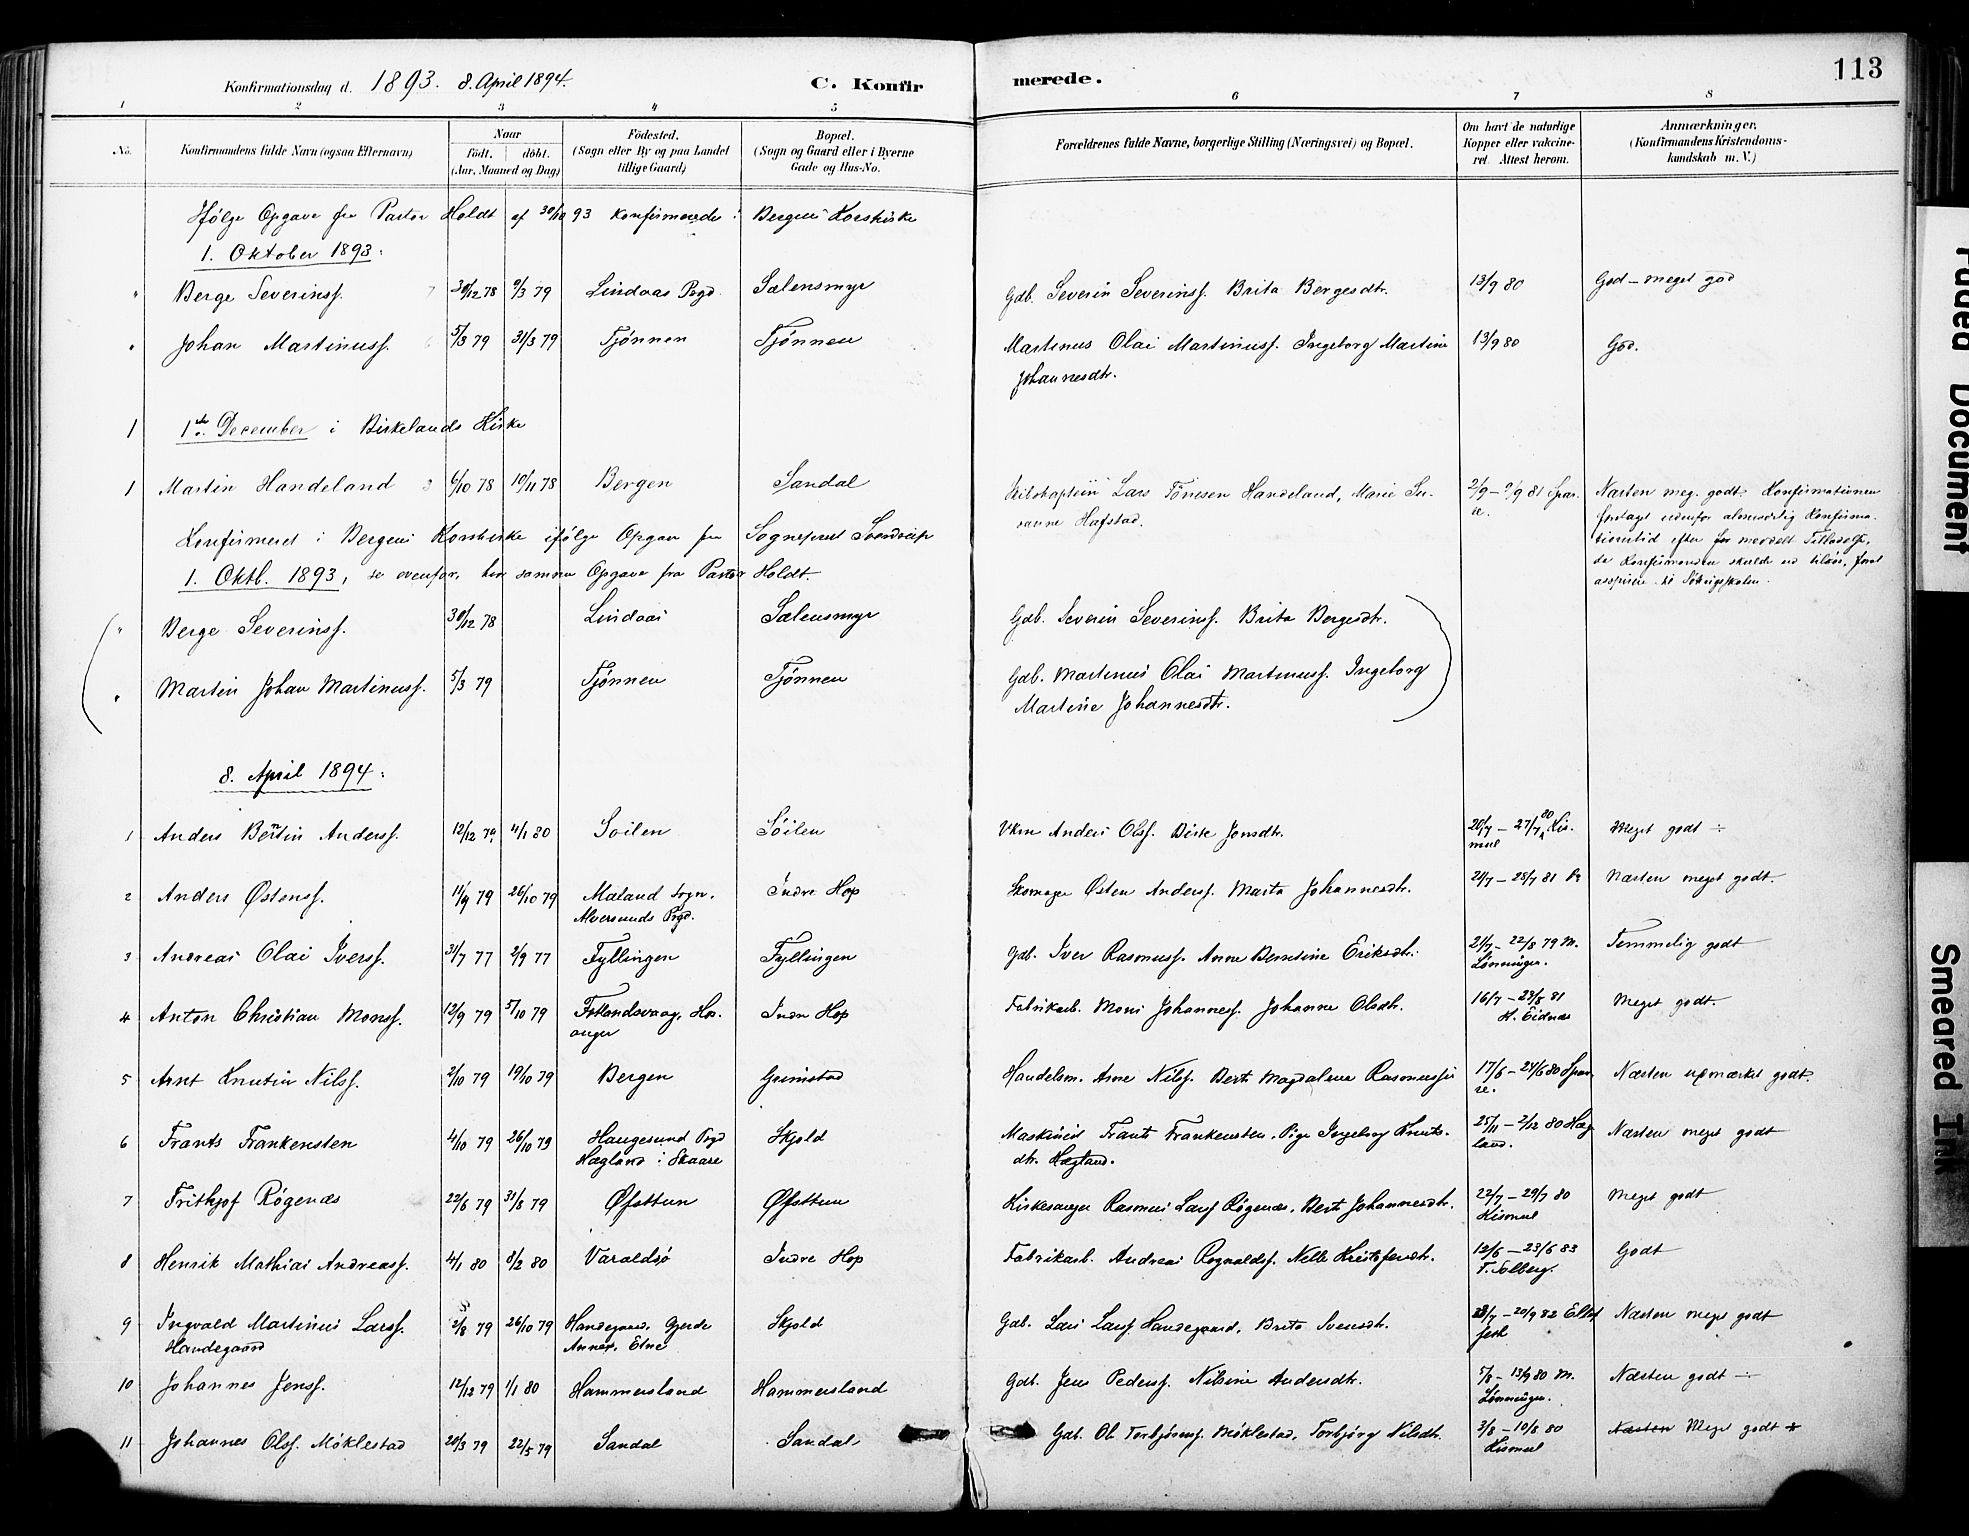 113
Konfirmationsdag d. 1893. 8. April 1894. C. Konfirmerede.
1 2 3 4 5 6 7 8
No. Konfirmandens fulde Navn (ogsaa Efternavn) Naar født. døbt. (Aar, Maaned og Dag) Fødested. (Sogn eller By og paa Landet tillige Gaard) Bopæl. (Sogn og Gaard eller i Byerne Gade og Hus-No. Forældrenes fulde Navne, borgerlige Stilling (Næringsvei) og Bopæl. Om havt de naturlige Kopper eller vakcineret. Attest herom. Anmærkninger. (Konfirmandens Kristendomskundskab m. V.)
Ifølge Opgave fra Pastor Holdt af 30/10 93 konfirmerede i Bergens Korskirke
1. Oktober 1893:
" Berge Severinsf. 30/12 78 9/3 79 Lindaas Prgd. Sælensmyr Gdb. Severin Severinsf. Brita Bergesdtr. 13/9 80 God - meget god
" Johan Martinusf. 5/3 79 31/3 79 Tjønnen Tjønnen Martinus Olai Martinusf. Ingeborg Martine 13/9 80 God.
Johannesdtr.
1 1ste December i Birkelands Kirke
1 Martin Handeland 6/10 78 10/11 78 Bergen Sandal Lars Tönesen Handeland, Marie Su- Næsten meg. godt. Konfirmationen
sanne Hafstad. foretaget udenfor almindelig Konfirma-
Konfirmeret i Bergens Korskirke ifølge Opgave fra Sogneprest tionstid efter
1. Oktb. 1893, se ovenfor, her samme Opgave fra Pastor Holdt.
" Berge Severinsf. 30/12 78 Lindaas Sælensmyr Gdb. Severin Severinsf. Brita Bergesdtr.
" Martin Johan Martinusf. 5/3 79 Tjønnen Tjønnen Gdb. Martinus Olai Martinusf. Ingeborg
Martine Johannesdtr.
8. April 1894:
1 Anders Bertin Andersf. 12/12 79 4/1 80 Søilen Søilen Anders Olsf. Birte Jonsdtr. 20/7 - 27/7 80 Kismul Meget godt ÷
2 Anders Østensf. 11/9 79 26/10 79 Mæland Sogn, Alversunds Prgd. Indre Hop Skomager Østen Andersf. Marta Johannesdtr. 21/7 - 28/7 81 Næsten meget godt.
3 Andreas Olai Iversf. 31/7 77 2/9 77 Fyllingen Fyllingen Gdb. Iver Rasmusf. Anne Berntine Eriksdtr. 21/7 - 22/8 79 M. Lønninger. Temmelig godt
4 Anton Christian Monsf. 12/9 79 5/10 79 Fotlandsvaag, Hosanger Indre Hop Fabrikarb. Mons Johannesf. Johanne Olsdtr. 16/7 - 23/8 81 H. Eidnæs Meget godt.
5 Arnt Knutin Nilsf. 2/10 79 19/10 79 Bergen Grimstad Handelsm. Arne Nilsf. Bert. Magdalene Rasmussen 17/6 - 24/6 80 Sparre. Næsten udmærket godt.
6 Frants Frankensten 4/10 79 26/10 79 Haugesund Prgd Hægland i Skaare Skjold Maskinist Frants Frankensten, Pige Ingeborg Knutsdtr. Hægland. 25/11 - 2/12 80 Hægland. Næsten meget godt
7 Frithjof Røgenæs 22/6 79 31/8 79 Øfsttun Øfsttun Kirkesanger Rasmus Larsf. Røgenæs, Bert. Johannesdtr. 22/7 - 29/7 80 Kismul Meget godt
8 Henrik Mathias Andreasf. 4/1 80 8/2 80 Varaldsø Indre Hop Fabrikarb. Andreas Rognaldsf. Nelle Kristofersdtr. 12/6 - 23/6 83 T. Solberg. Godt
9 Ingvald Martinus Larsf. Handegaard 2/8 79 26/10 79 Handegaard, Gjerde Annex, Etne Skjold Gdb. Lars Larsf. Handegaard, Brita Svensdtr. 23/7 - 20/9 82 Næsten meget godt
10 Johannes Jensf. 12/12 79 1/1 80 Hammersland Hammersland Gdb. Jens Pedersf. Nilsine Andersdtr. 5/8 - 13/9 80 M. Lønninger. Næsten godt ÷
11 Johannes Olsf. Møklestad 20/3 79 22/5 79 Sandal Sandal Gdb. Ole Torbjørnsf. Møklestad, Torbjørg Nilsdtr. 3/8 - 10/8 80 Kismul Næsten Meget godt
Faded Document
Smeared Ink